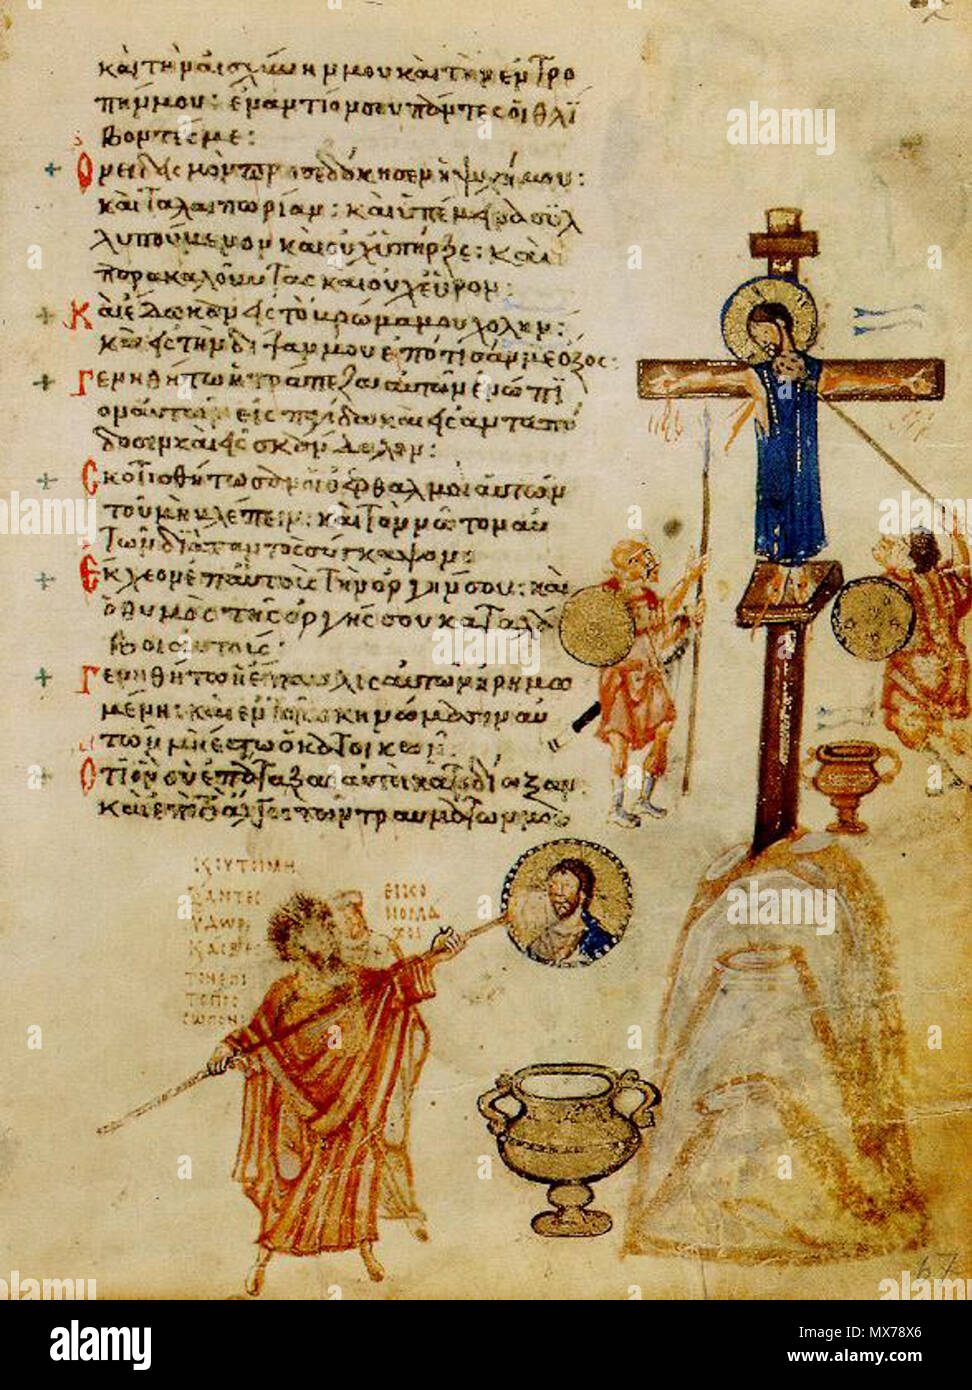 καὶ τὴν αἰσχύνην μου καὶ τὴν ἐντρο
πήν μου: ἐναντίον σου πάντες οἱ θλί
βοντές με:
Ὀνειδισμὸν προσεδόκησεν ἡ ψυχή μου:
καὶ ταλαιπωρίαν: καὶ ὑπέμεινα συλ
λυπούμενον καὶ οὐχ ὑπῆρξε: καὶ
παρακαλοῦντας καὶ οὐχ εὗρον:
Καὶ ἔδωκαν εἰς τὸ βρῶμά μου χολήν:
καὶ εἰς τὴν δίψαν μου ἐπότισάν με ὄξος:
Γενηθήτω ἡ τράπεζα αὐτῶν ἐνώπι
ον αὐτῶν εἰς παγίδα καὶ εἰς ἀνταπό
δοσιν καὶ εἰς σκάνδαλον:
Σκοτισθήτωσαν οἱ ὀφθαλμοὶ αὐτῶν
τοῦ μὴ βλέπειν: καὶ τὸν νῶτον αὐ
τῶν διὰ παντὸς σύγκαμψον:
Ἔκχεον ἐπ αὐτοὺς τὴν ὀργήν σου: καὶ
ὁ θυμὸς τῆς ὀργῆς σου καταλά
βοι αὐτούς:
Γενηθήτω ἡ ἔπαυλις αὐτῶν ἠρημω
μένη: καὶ ἐν τοῖς σκηνώμασιν αὐ
τῶν μὴ ἔστω ὁ κατοικῶν:
Ὅτι ὃν σὺ ἐπάταξας αὐτοὶ κατεδίωξαν:
καὶ ἐπὶ τὸ ἄλγος τῶν τραυμάτων μου
Κ ΟΥΤΟΙ ΜΗ
ΞΑΝΤΕΣ
ΥΔΩΡ
ΤΟ ΠΡΟ
ΣΩΠΟΝ
ΕΙΚΟ
ΝΟΜΑ
ΧΟΙ
67
alamy
Image ID: MX78X6
www.alamy.com